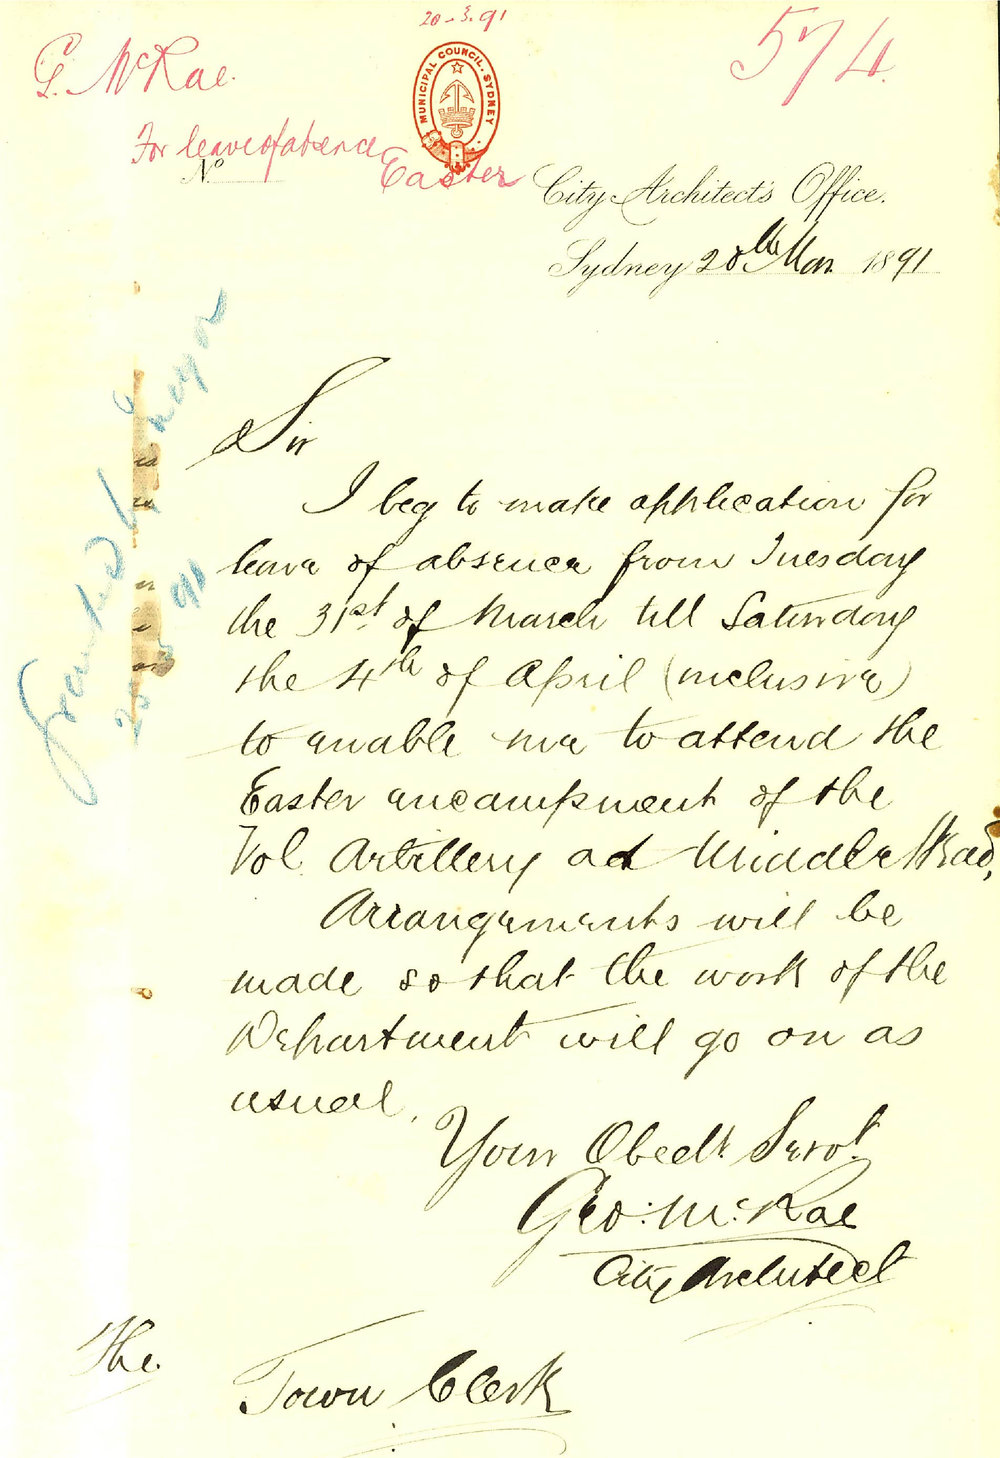 20-3.91
G. McRae.
574
MUNICIPAL COUNCIL. SYDNEY
For leave of absence
Easter
No
City Architect's Office.
Sydney 20th Mar. 1891
Granted by Mayor
91
Sir
I beg to make application for
leave of absence from Tuesday
the 31st. of March till Saturday
the 4th of April (inclusive)
to enable me to attend the
Easter encampment of the
Vol. Artillery at Middle Head,
Arrangements will be
made so that the work of the
Department will go on as
usual.
Your Obedt. Servt.
Geo: McRae
City Architect
The.
Town Clerk